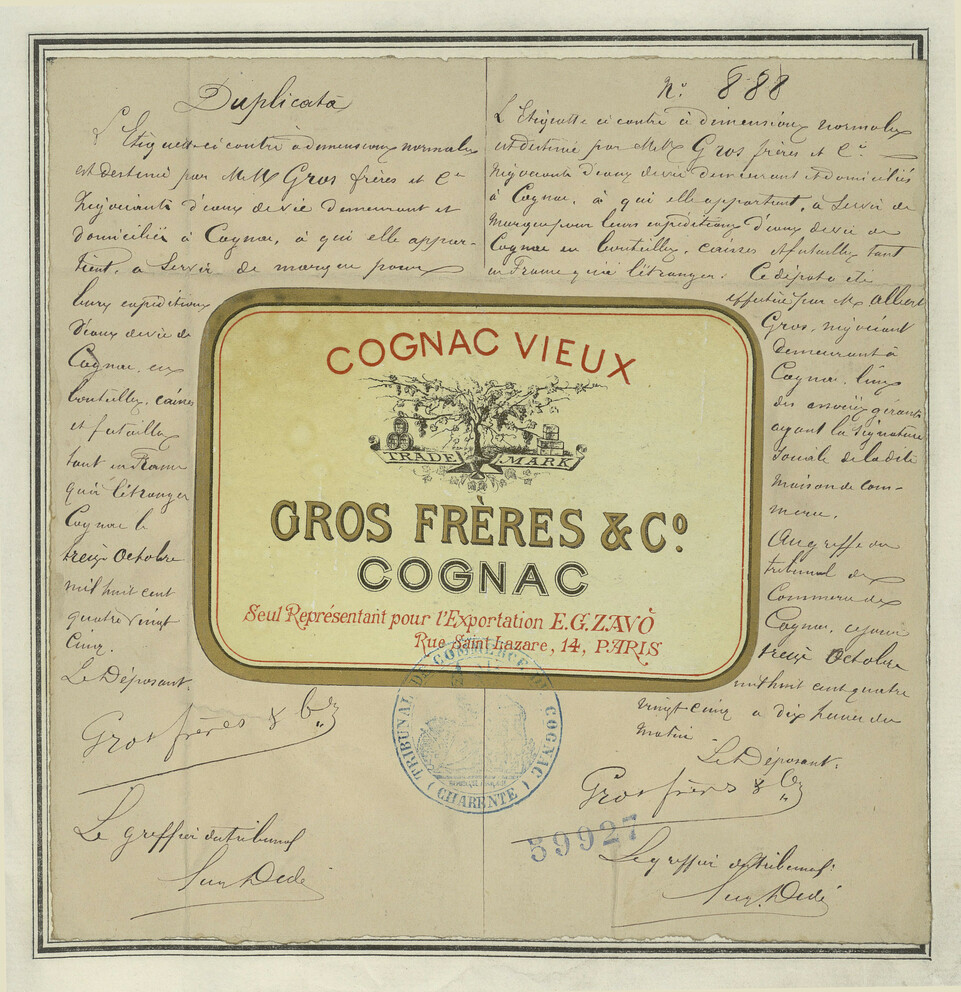 Duplicata
L'Etiquette ci contre à dimensions normales
est destiné par M.M. Gros frères et Cie
Négociants d'eaux de vie demeurant et
domiciliés à Cognac, à qui elle appar-
tient, à servir de marque pour
leurs expéditions
d'eaux de vie de
Cognac, en
bouteilles, caisses
et futailles
tant en France
qu'à l'étranger
Cognac le
treize Octobre
mil huit cent
quatre vingt
Cinq.
Le Déposant.
Gros frères & Cie
Le greffier du tribunal
N° 888
L'Etiquette ci contre à dimensions normales
est destiné par M.M. Gros frères et Cie
Négociants d'eaux de vie demeurant et domiciliés
à Cognac, à qui elle appartient, à servir de
marque pour leurs expéditions d'eaux de vie de
Cognac en bouteilles, caisses et futailles tant
en France qu'à l'étranger. Ce dépot a été
effectué par M. Albert
Gros, négociant
demeurant à
Cognac, l'un
des associés gérants
ayant la signature
sociale de la dite
maison de com-
merce.
Au greffe du
tribunal de
Commerce de
Cognac, ce jour
treize Octobre
mil huit cent quatre
vingt cinq à dix heures du
matin
Le Déposant.
Gros frères & Cie
Le greffier du tribunal
COGNAC VIEUX
TRADE MARK
GROS FRÈRES & Cº
COGNAC
Seul Représentant pour l'Exportation E.G.ZAVÒ
Rue Saint-Lazare, 14, PARIS
TRIBUNAL DE COMMERCE DE COGNAC
(CHARENTE)
39927